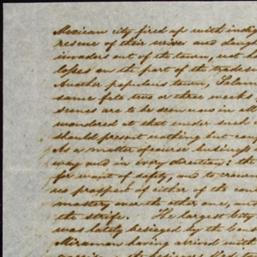 Mexican city fired up with indig
rescue of their wives and daugh
invaders out of the town, not
on the part of the
Another populous town,
same fate two or three weeks
scenes are to be seen in all
wondered at that under such
should present nothing but
As a matter of course business
way and in every direction; the
for want of safety, and to crown
no prospect of either of the con
mastery over the other one, and
the strife. The largest city
was lately besieged by the Cons
Miramon having arrived with